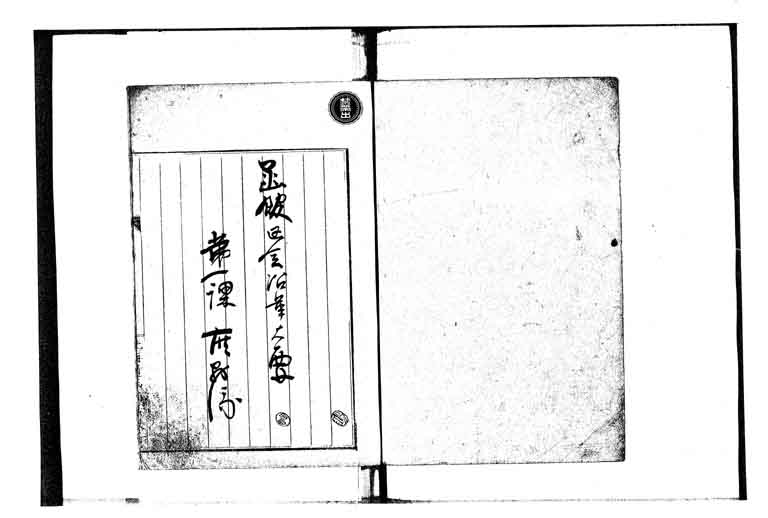 禁出
函館区会沿革大要
第一課 庶務係